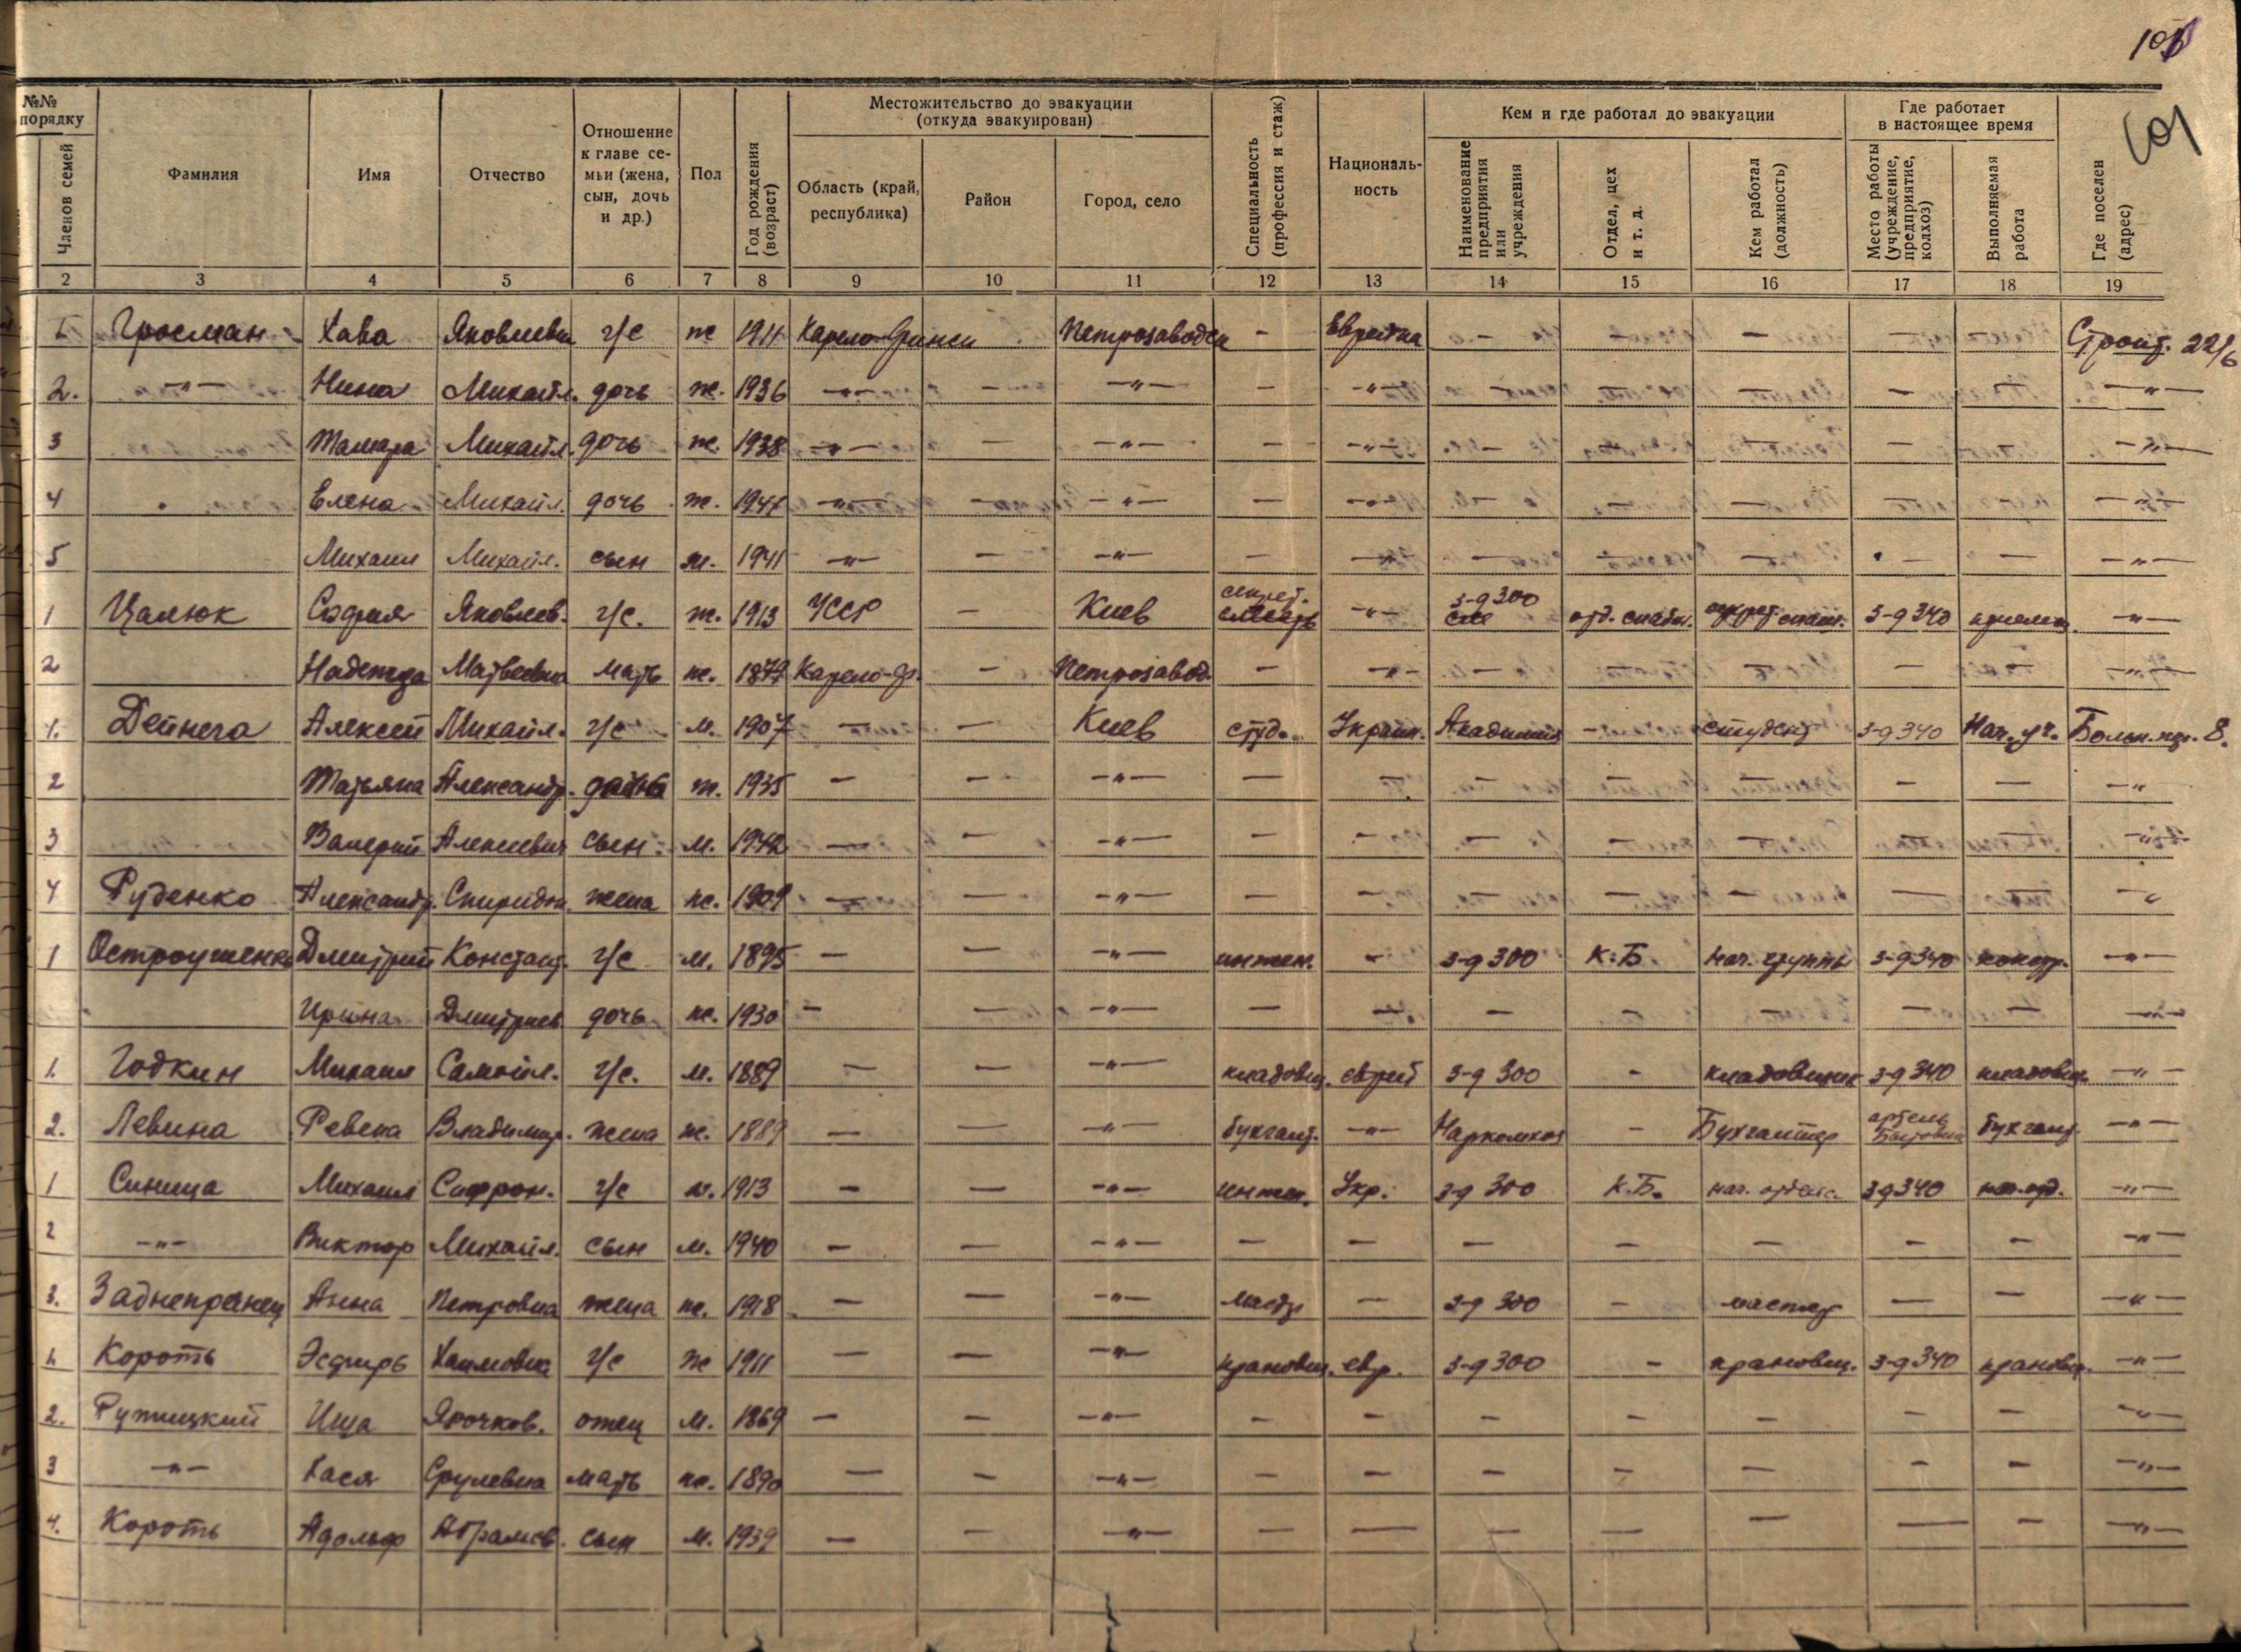 101
101
№№ порядку
Членов семей
Фамилия
Имя
Отчество
Отношение к главе семьи (жена, сын, дочь и др.)
Пол
Год рождения (возраст)
Местожительство до эвакуации (откуда эвакуирован)
Область (край, республика)
Район
Город, село
Специальность (профессия и стаж)
Националь-ность
Кем и где работал до эвакуации
Наименование предприятия или учреждения
Отдел, цех и т. д.
Кем работал (должность)
Где работает в настоящее время
Место работы (учреждение, предприятие, колхоз)
Выполняемая работа
Где поселен (адрес)
2 3 4 5 6 7 8 9 10 11 12 13 14 15 16 17 18 19
1. Гросман Хава Яковлевна г/с ж 1911 Карело-Финск Петрозаводск — Еврейка — — — — — Строит. 22/6
2. —"— Нина Михайл. дочь ж. 1936 —"— — —"— — —"— — — — — — —"—
3 Тамара Михайл. дочь ж. 1938 —"— — —"— — —"— — — — — — —"—
4 Елена Михайл. дочь ж. 1941 —"— — —"— — —"— — — — — — —"—
5 Михаил Михайл. сын м. 1941 —"— — —"— — —"— — — — — — —"—
1 Цалюк София Яковлев. г/с. ж. 1913 УССР — Киев секрет. —"— з-д 300 отд. снабж. секрет. з-д 340 —"—
2 Надежда Матвеевна мать ж. 1879 Карело-ф. — Петрозавод. — —"— — — — — — —"—
1. Дейнега Алексей Михайл. г/с м. 1907 — — Киев студ. Украин. Академия — студент з-д 340 Нач. уч. Больн. 8.
2 Татьяна Александр. дочь ж. 1935 — — —"— — — — — — — — —"
3 Валерий Алексеевич сын м. 1942 — — —"— — — — — — — — —"—
4 Руденко Александр. Спиридон. жена ж. 1909 — — —"— — — — — — — — —"
1 Остроушенко Дмитрий Констант. г/с м. 1895 — — —"— инжен. — з-д 300 К.Б. нач. группы з-д 340 —"—
Ирина Дмитриев. дочь ж. 1930 — — —"— — — — — — — — —"—
1. Годкин Михаил Самойл. г/с. м. 1889 — — —"— кладовщ. еврей з-д 300 — кладовщик з-д 340 кладовщ. —"—
2. Левина Ревека Владимир. жена ж. 1889 — — —"— бухгалт. —"— Наркомхоз — Бухгалтер артель бухгалт. —"—
1 Синица Михаил Сафрон. г/с м. 1913 — — —"— инжен. Укр. з-д 300 К.Б. нач. отдела з-д 340 нач. отд. —"—
2 —"— Виктор Михайл. сын м. 1940 — — —"— — — — — — — — —"—
3. Заднепранец Анна Петровна жена ж. 1918 — — —"— мастер — з-д 300 — мастер — — —"—
1. Короть Эсфирь Хаимовна г/с ж 1911 — — —"— крановщ. евр. з-д 300 — крановщ. з-д 340 крановщ. —"—
2. отец м. 1869 — — —"— — — — — — — — —"—
3 —"— Хася Срулевна мать ж. 1890 — — —"— — — — — — — — —"—
4. Короть Адольф Абрамов. сын м. 1939 — — —"— — — — — — — — —"—